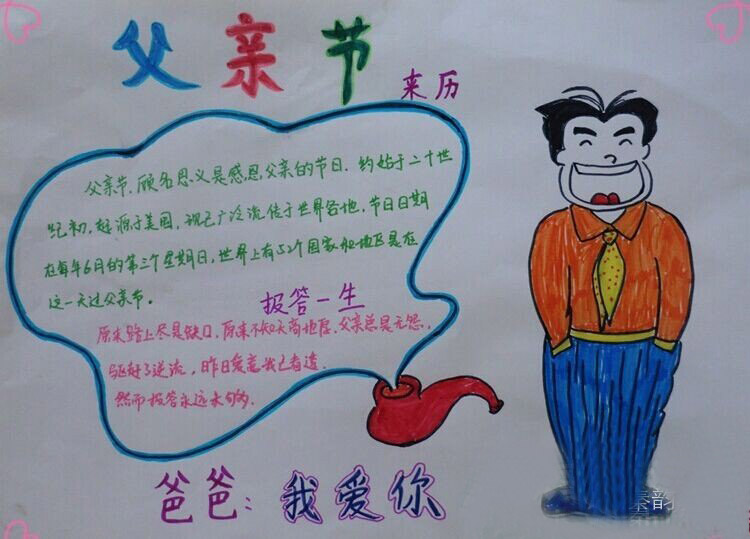 父亲节
来历
父亲节,顾名思义是感恩父亲的节日.约始于二十世
纪初,起源于美国,现已广泛流传于世界各地,节日日期
在每年6月的第三个星期日,世界上有52个国家和地区是在
这一天过父亲节。
报答一生
原来路上尽是缺口,原来不知天高地厚,父亲总是无怨,
驱赶了逆流,昨日爱意我已看透.
然而报答永远未够.
爸爸:我爱你
秦韵